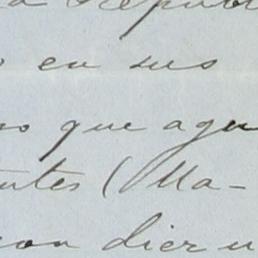 a Repub
o en sus
so que agu
entes (Ma-
con dier u